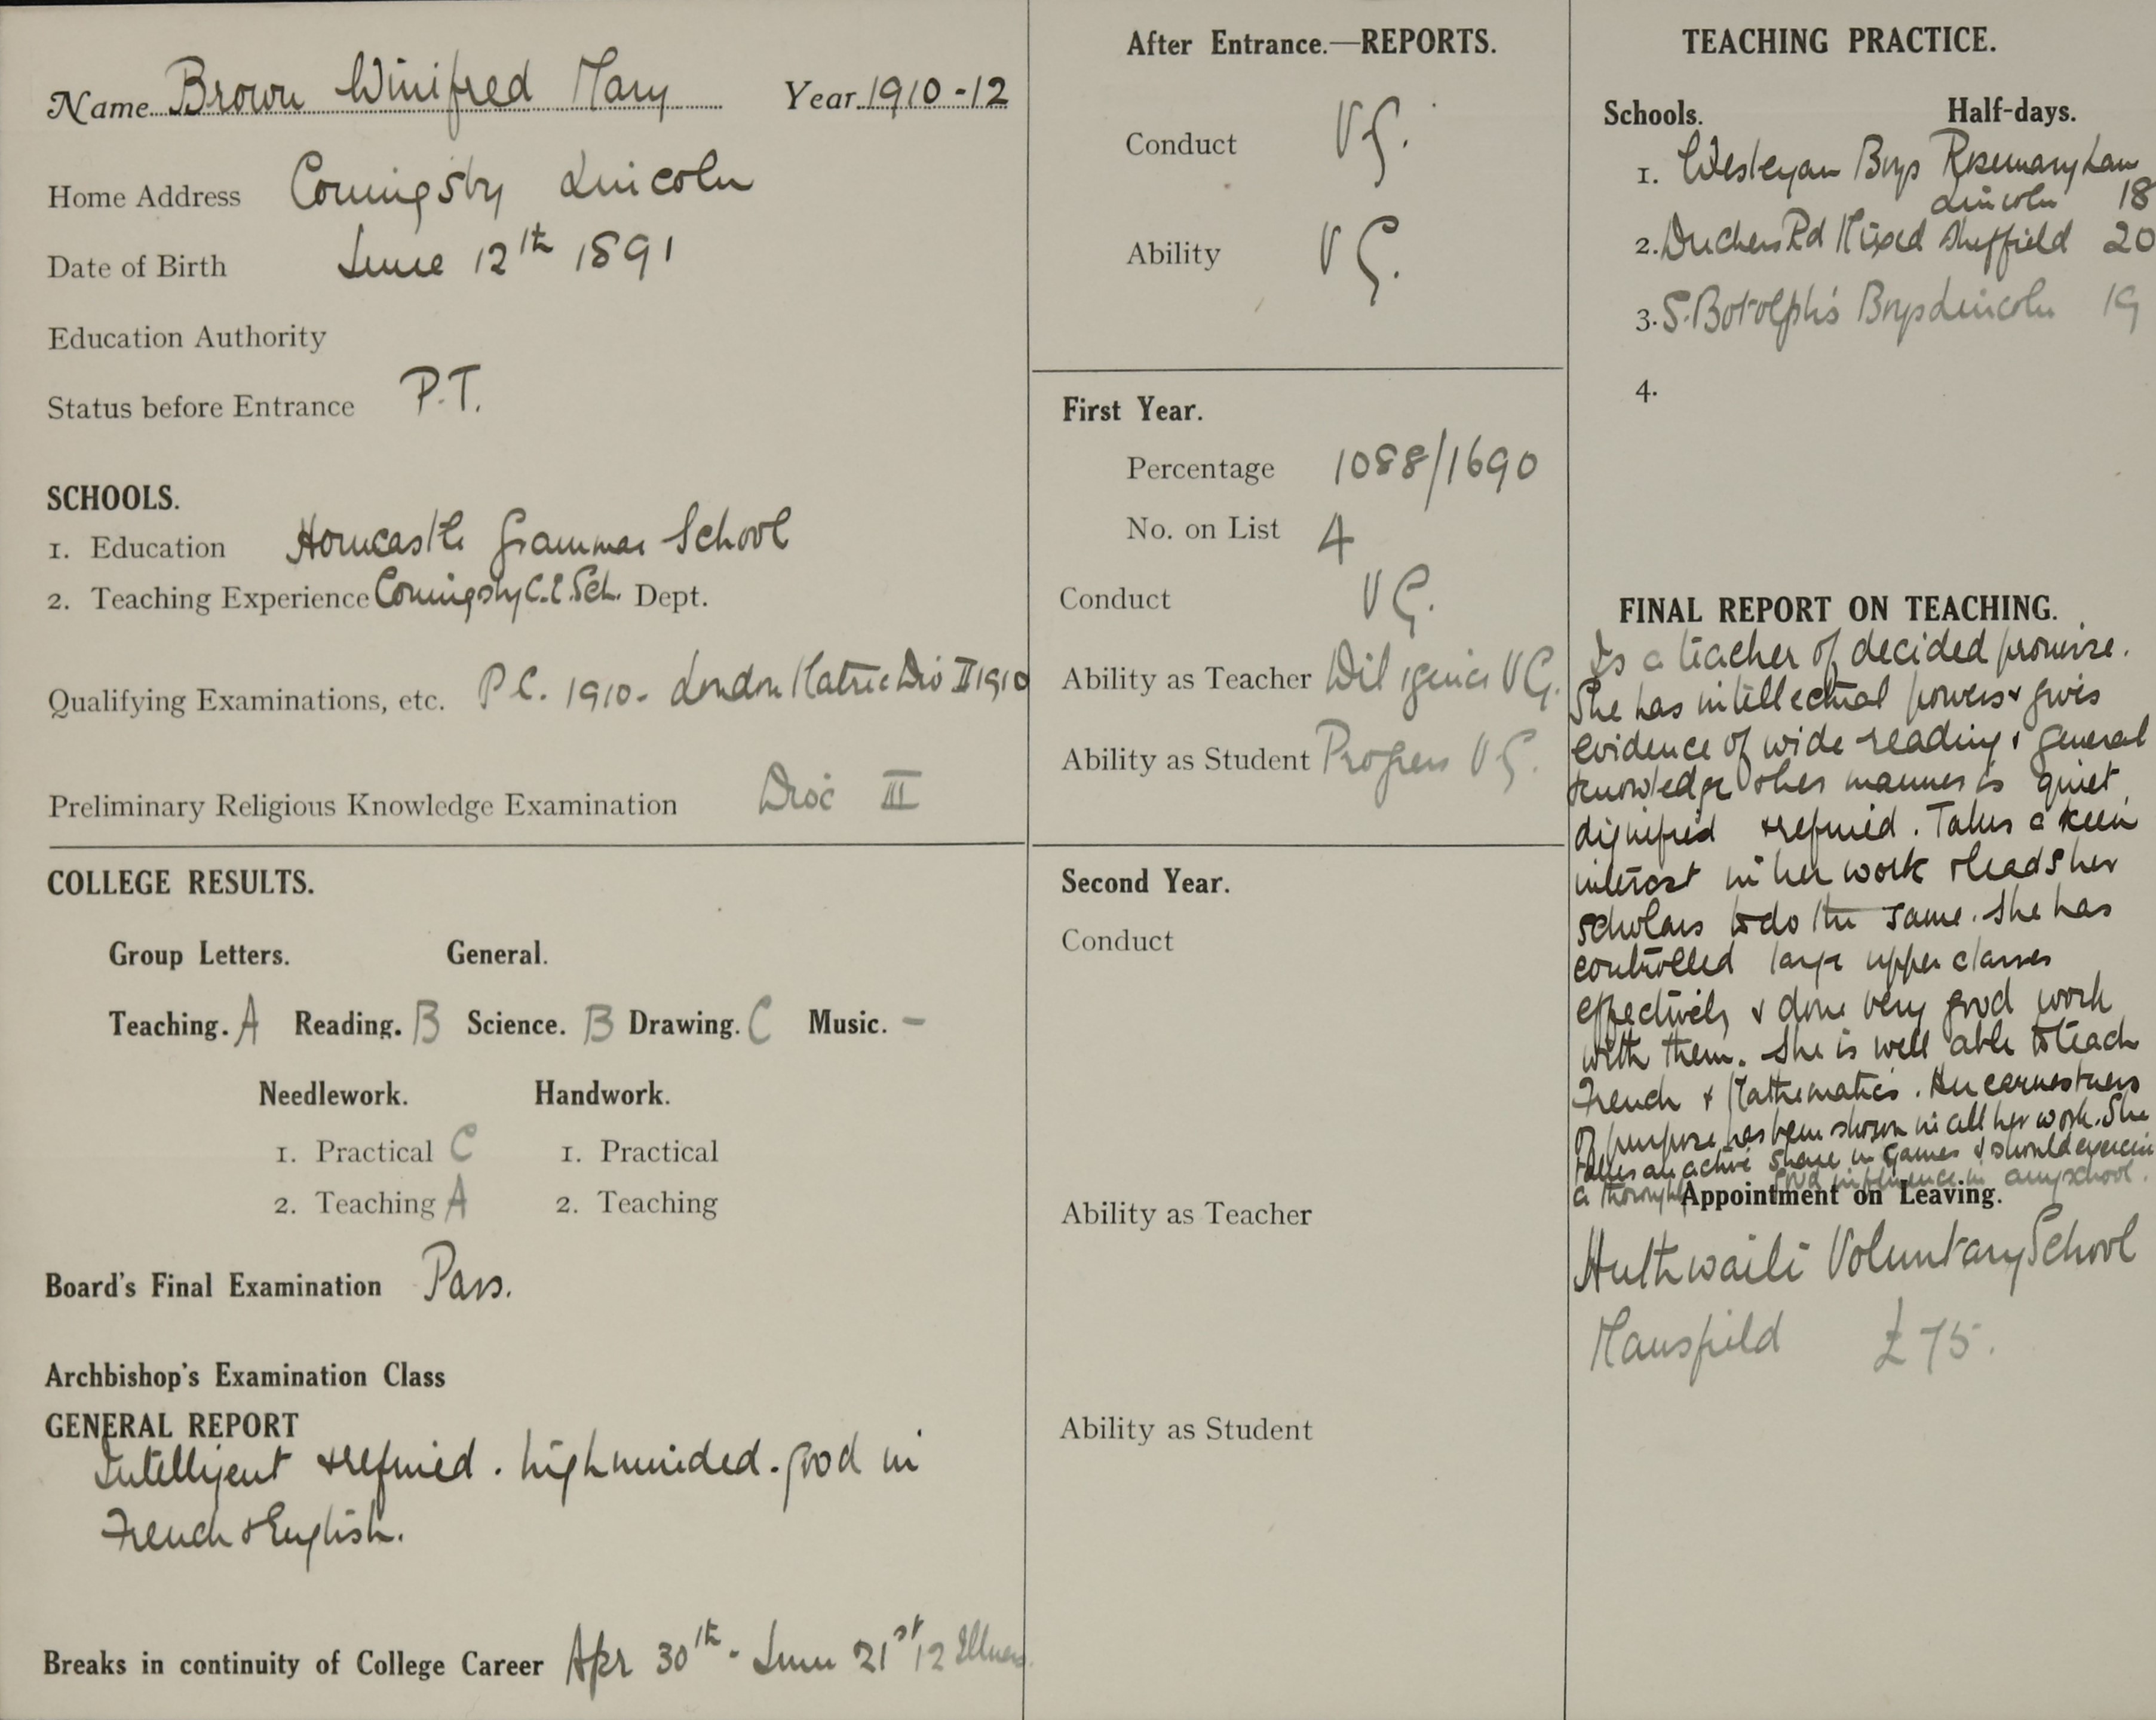 Name Brown Winifred Mary Year 1910-12
Home Address Coningsby Lincoln
Date of Birth June 12th 1891
Education Authority
Status before Entrance P.T.
SCHOOLS.
1. Education Horncastle Grammar School
2. Teaching Experience Coningsby C.E. Sch. Dept.
Qualifying Examinations, etc. P.C. 1910 - London Matric Div II 1910
Preliminary Religious Knowledge Examination Dioc III
COLLEGE RESULTS.
Group Letters. General.
Teaching. A Reading. B Science. B Drawing. C Music. -
Needlework. Handwork.
1. Practical C 1. Practical
2. Teaching A 2. Teaching
Board's Final Examination Pass.
Archbishop's Examination Class
GENERAL REPORT
Intelligent & refined. highminded. good in
French & English.
Breaks in continuity of College Career Apr 30th - June 21st 12 Illness.
After Entrance.—REPORTS.
Conduct V.G.
Ability V G.
First Year.
Percentage 1088/1690
No. on List 4
Conduct V G.
Ability as Teacher Diligence V G.
Ability as Student Progress V G.
Second Year.
Conduct
Ability as Teacher
Ability as Student
TEACHING PRACTICE.
Schools. Half-days.
1. Wesleyan Boys Rosemary Lane
Lincoln 18
2. Duchess Rd Mixed Sheffield 20
3. S. Botolph's Boys Lincoln 19
4.
FINAL REPORT ON TEACHING.
Is a teacher of decided promise.
She has intellectual powers & gives
evidence of wide reading & general
knowledge & her manner is quiet
dignified & refined. Takes a keen
interest in her work & leads her
scholars to do the same. She has
controlled large upper classes
effectively & done very good work
with them. She is well able to teach
French & Mathematics. Her earnestness
of purpose has been shown in all her work. She
takes an active share in games & should exercise
a thoroughly good influence in any school.
Appointment on Leaving.
Huthwaite Voluntary School
Mansfield £75.